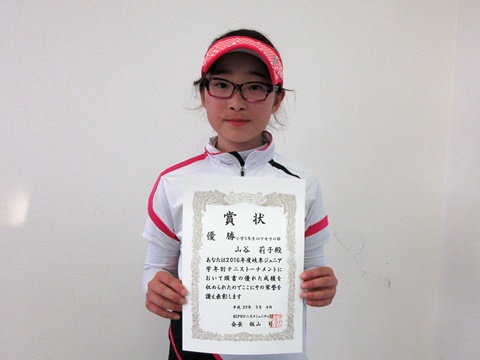 賞状
優勝 小学5年生以下女子の部
山谷 莉子殿
あなたは2016年度岐阜ジュニア
学年別テニストーナメントに
おいて頭書の優れた成績を
収められたのでここにその栄誉を
讃え表彰します
平成29年 3月 4日
GIFUテニスコミュニティ
会長 板山